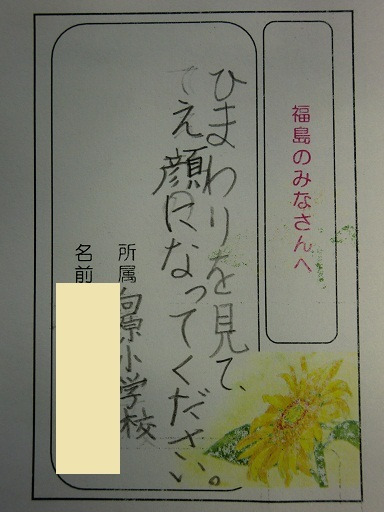 福島のみなさんへ
ひまわりを見て、
え顔になってください。
所属 向原小学校
名前